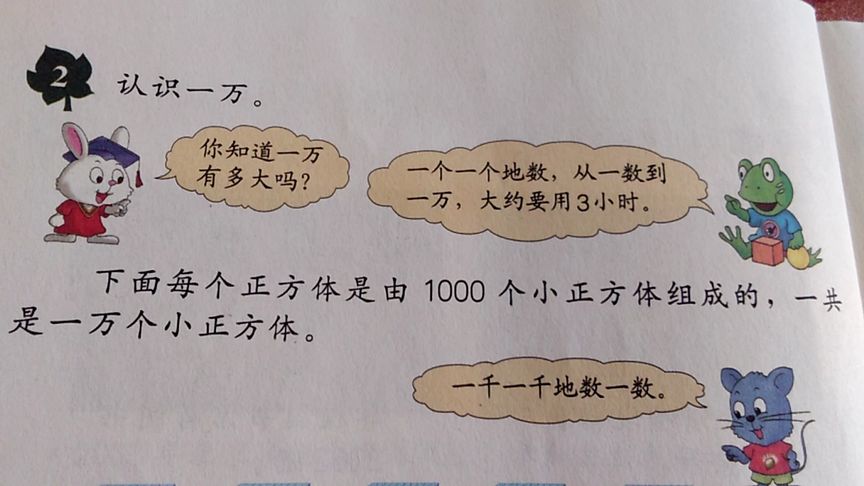 2 认识一万。
你知道一万
有多大吗？
一个一个地数，从一数到
一万，大约要用3小时。
下面每个正方体是由 1000 个小正方体组成的，一共
是一万个小正方体。
一千一千地数一数。